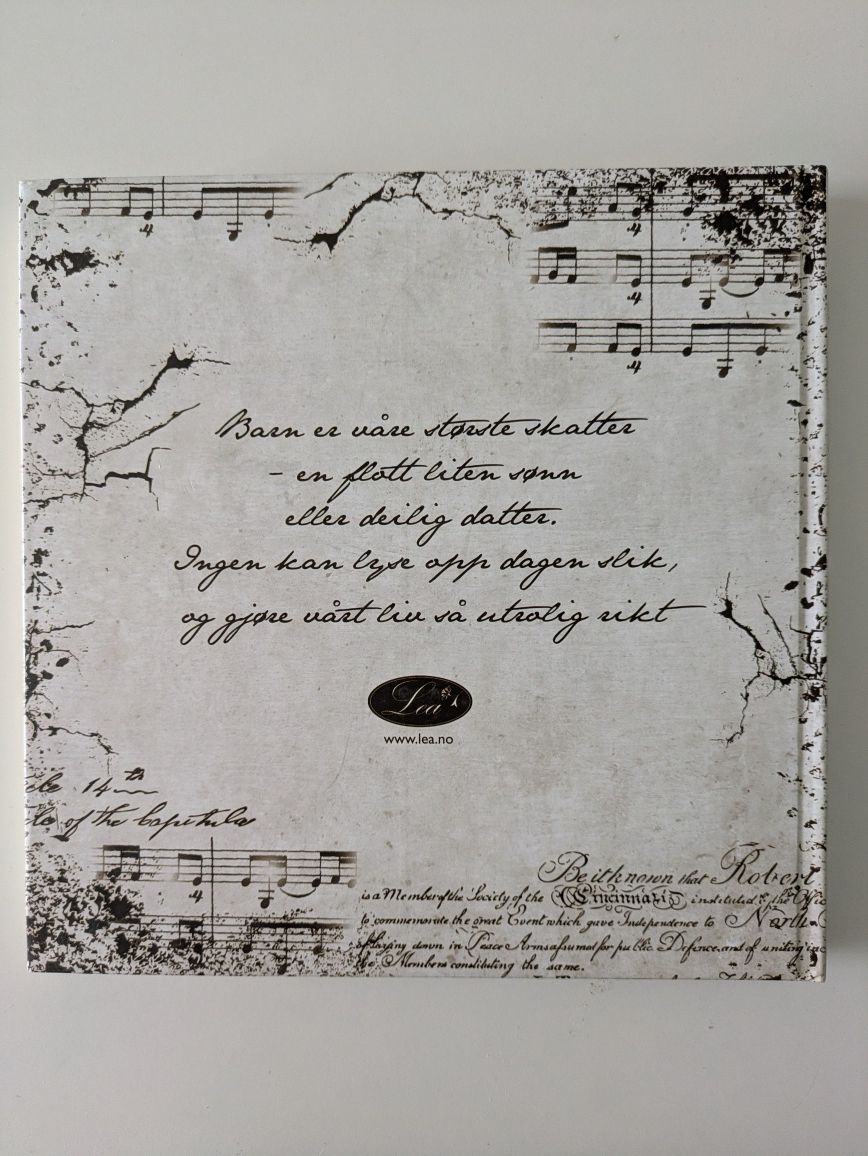 Barn er våre største skatter
- en flott liten sønn
eller deilig datter.
Ingen kan lyse opp dagen slik,
og gjøre vårt liv så utrolig rikt
Lea
www.lea.no
14th
of the Capitula
Be it known that Robert
is a Member of the Society of the Cincinnati instituted
to commemorate the great Event which gave Independence to North
of laying down in Peace Arms assumed for public Defence, and of uniting in
the Members constituting the same.